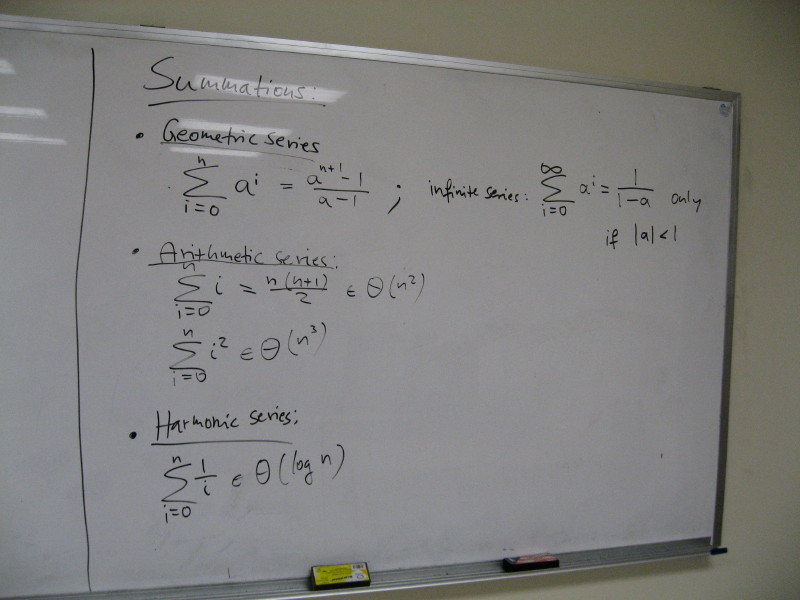 Summations:
• Geometric series
∑_{i=0}^{n} a^i = (a^{n+1} - 1)/(a - 1) ; infinite series: ∑_{i=0}^{∞} a^i = 1/(1-a) only
if |a| < 1
• Arithmetic series:
∑_{i=0}^{n} i = n(n+1)/2 ∈ Θ(n^2)
∑_{i=0}^{n} i^2 ∈ Θ(n^3)
• Harmonic series:
∑_{i=0}^{n} 1/i ∈ Θ(log n)